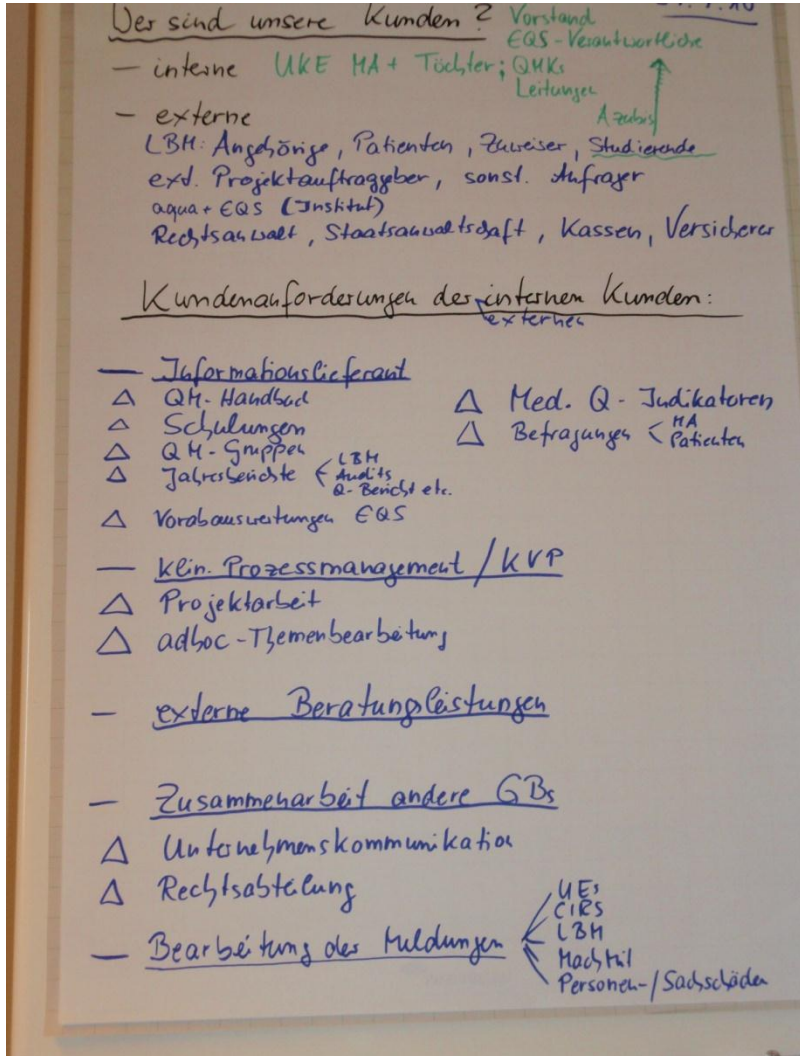 Wer sind unsere Kunden? Vorstand
EQS-Verantwortliche
– interne UKE MA + Töchter; QMKs
Leitungen
– externe Azubis
LBM: Angehörige, Patienten, Zuweiser, Studierende
ext. Projektauftraggeber, sonst. Anfrager
aqua + EQS (Institut)
Rechtsanwalt, Staatsanwaltschaft, Kassen, Versicherer
Kundenanforderungen der internen Kunden:
externen
— Informationslieferant
△ QM-Handbuch
△ Schulungen
△ QM-Gruppen
△ Jahresberichte < LBM
Audits
Q-Bericht etc.
△ Vorabauswertungen EQS
△ Med. Q-Indikatoren
△ Befragungen < MA
Patienten
— klin. Prozessmanagement / KVP
△ Projektarbeit
△ adhoc-Themenbearbeitung
— externe Beratungsleistungen
— Zusammenarbeit andere GBs
△ Unternehmenskommunikation
△ Rechtsabteilung
— Bearbeitung der Meldungen
UEs
CIRS
LBM
MachMit
Personen-/Sachschäden